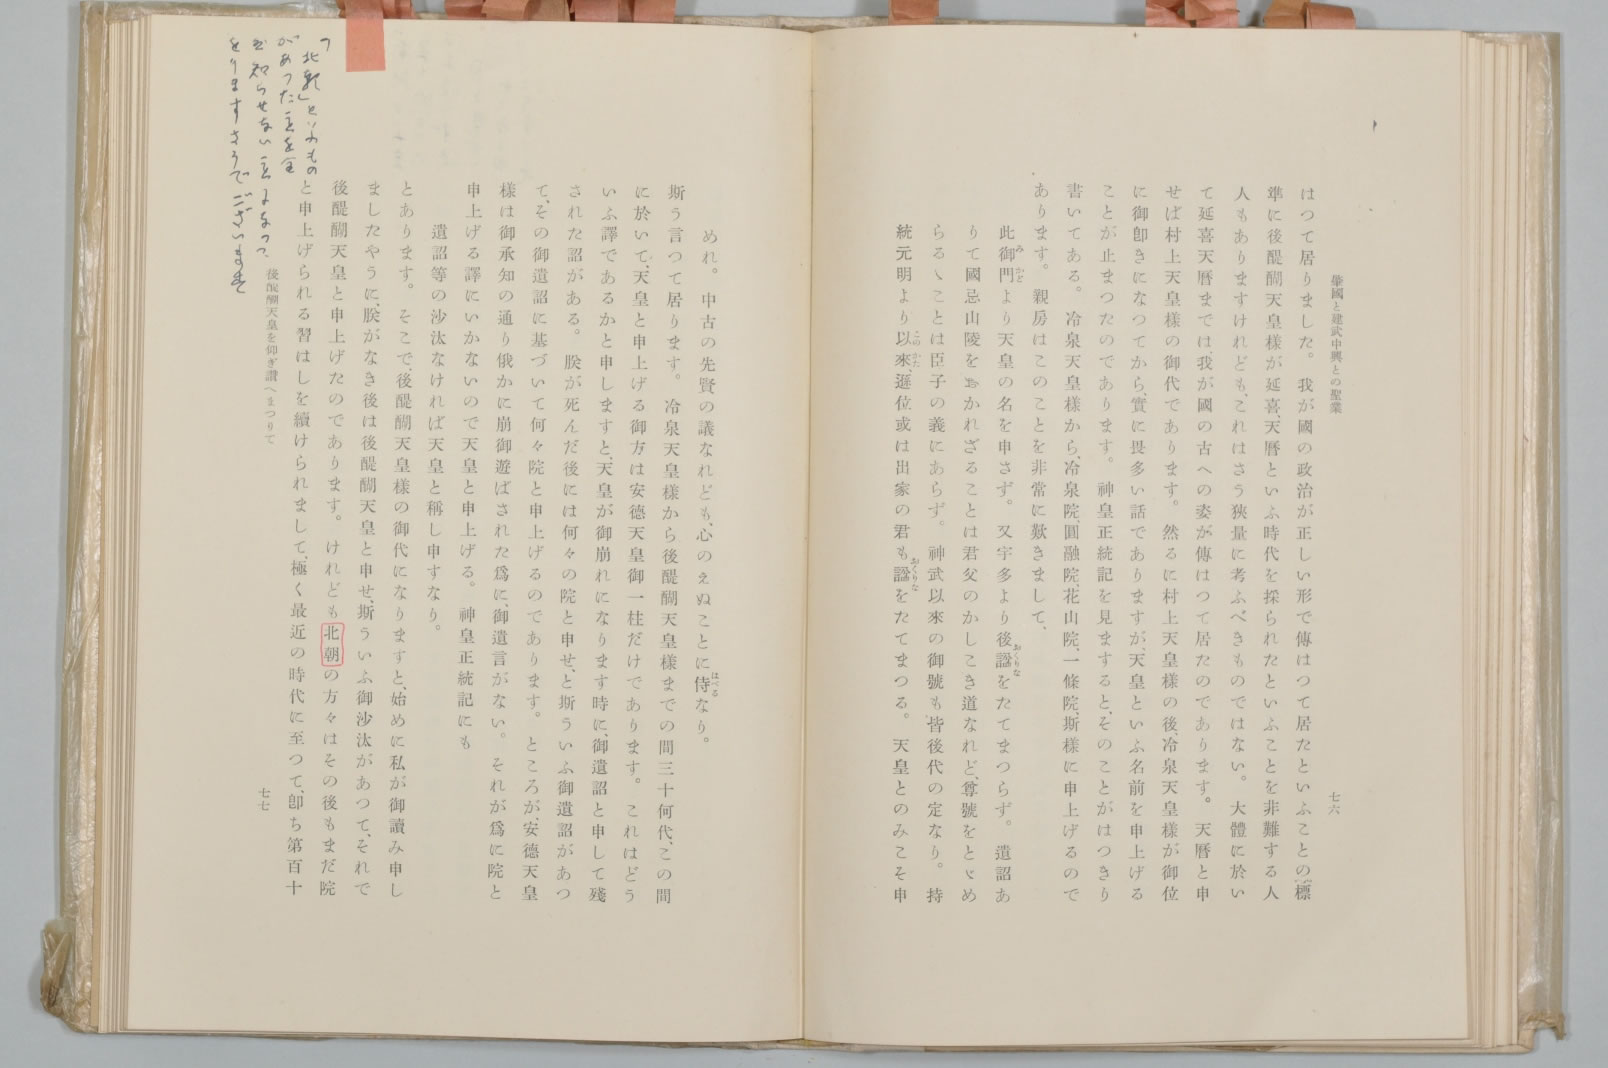 肇國と建武中興との聖業
七六
はつて居りました。我が國の政治が正しい形で傳はつて居たといふことの標
準に後醍醐天皇樣が延喜、天曆といふ時代を採られたといふことを非難する人
人もありますけれども、これはさう狹量に考ふべきものではない。大體に於い
て延喜天曆までは、我が國の古への姿が傳はつて居たのであります。天曆と申
せば村上天皇樣の御代であります。然るに村上天皇樣の後、冷泉天皇樣が御位
に御卽きになつてから、實に畏多い話でありますが、天皇といふ名前を申上げる
ことが止まつたのであります。神皇正統記を見ますると、そのことがはつきり
書いてある。冷泉天皇樣から、冷泉院、圓融院、花山院、一條院、斯樣に申上げるので
あります。親房はこのことを非常に歎きまして、
此御門みかどより天皇の名を申さず。又宇多より後諡おくりなをたてまつらず。遺詔あ
りて國忌山陵をおかれざることは君父のかしこき道なれど、尊號をとゞめ
らるゝことは臣子の義にあらず。神武以來の御號も皆後代の定なり。持
統元明より以來このかた、遜位或は出家の君も諡おくりなをたてまつる。天皇とのみこそ申
めれ。中古の先賢の議なれども、心のえぬことに侍はべるなり。
斯う言つて居ります。冷泉天皇樣から後醍醐天皇樣までの間三十何代、この間
に於いて、天皇と申上げる御方は安德天皇御一柱だけであります。これはどう
いふ譯であるかと申しますと、天皇が御崩れになります時に、御遺詔と申して殘
された詔がある。朕が死んだ後には何々の院と申せ、と斯ういふ御遺詔があつ
て、その御遺詔に基づいて何々院と申上げるのであります。ところが、安德天皇
樣は御承知の通り俄かに崩御遊ばされた爲に、御遺言がない。それが爲に院と
申上げる譯にいかないので天皇と申上げる。神皇正統記にも
遺詔等の沙汰なければ天皇と稱し申すなり。
とあります。そこで、後醍醐天皇樣の御代になりますと、始めに私が御讀み申し
ましたやうに、朕がなき後は後醍醐天皇と申せ、斯ういふ御沙汰があつて、それで
後醍醐天皇と申上げたのであります。けれども北朝の方々はその後もまだ院
と申上げられる習はしを續けられまして、極く最近の時代に至つて、卽ち第百十
後醍醐天皇を仰ぎ讚へまつりて
七七
「北朝」といふもの
があつた事を全
然知らせない事になつて
をりますさうでございます